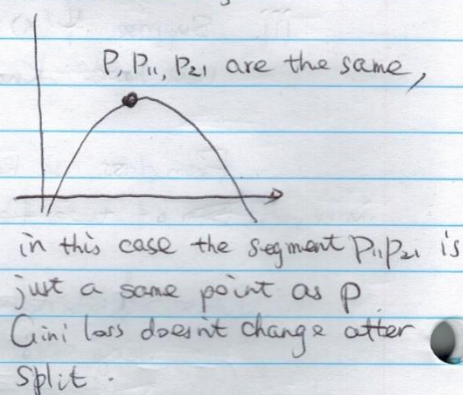 P, P₁₁, P₂₁ are the same,
in this case the segment P₁₁P₂₁ is
just a same point as P
Gini loss doesn't change after
split.